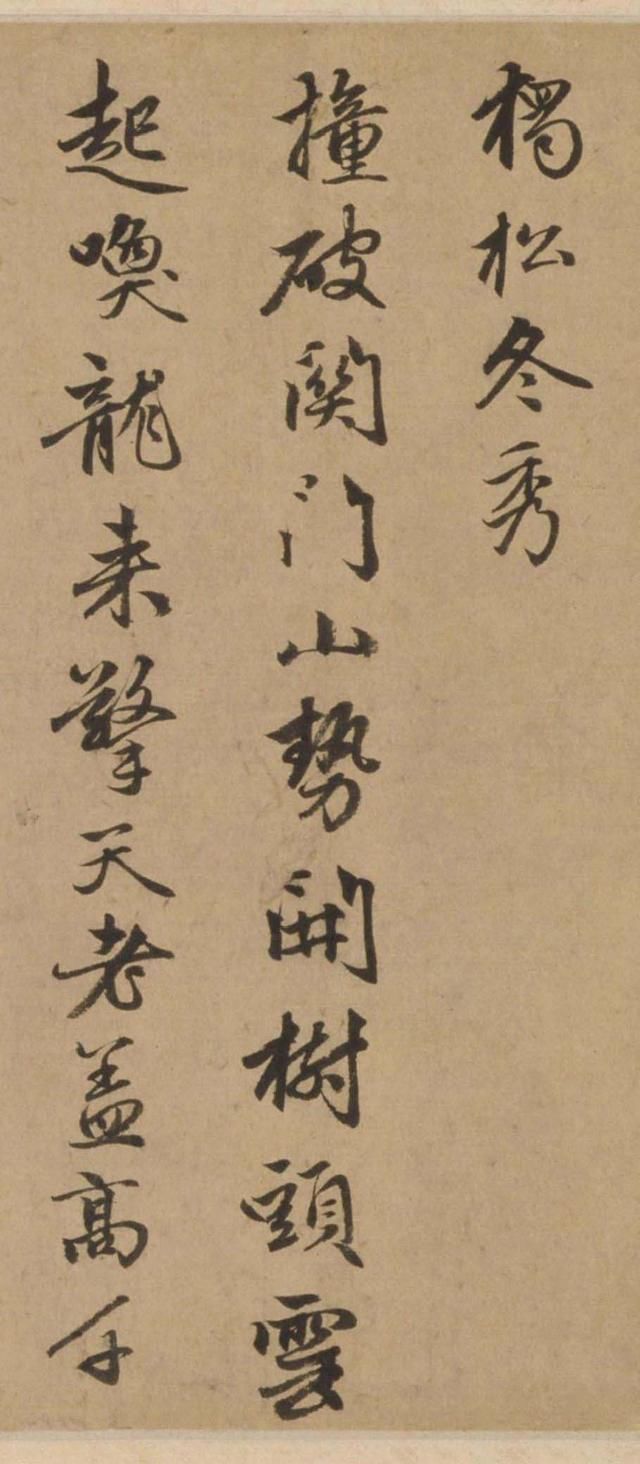 獨松冬秀
撞破関門山勢開樹頭雲
起喚龍来擎天老盖高千